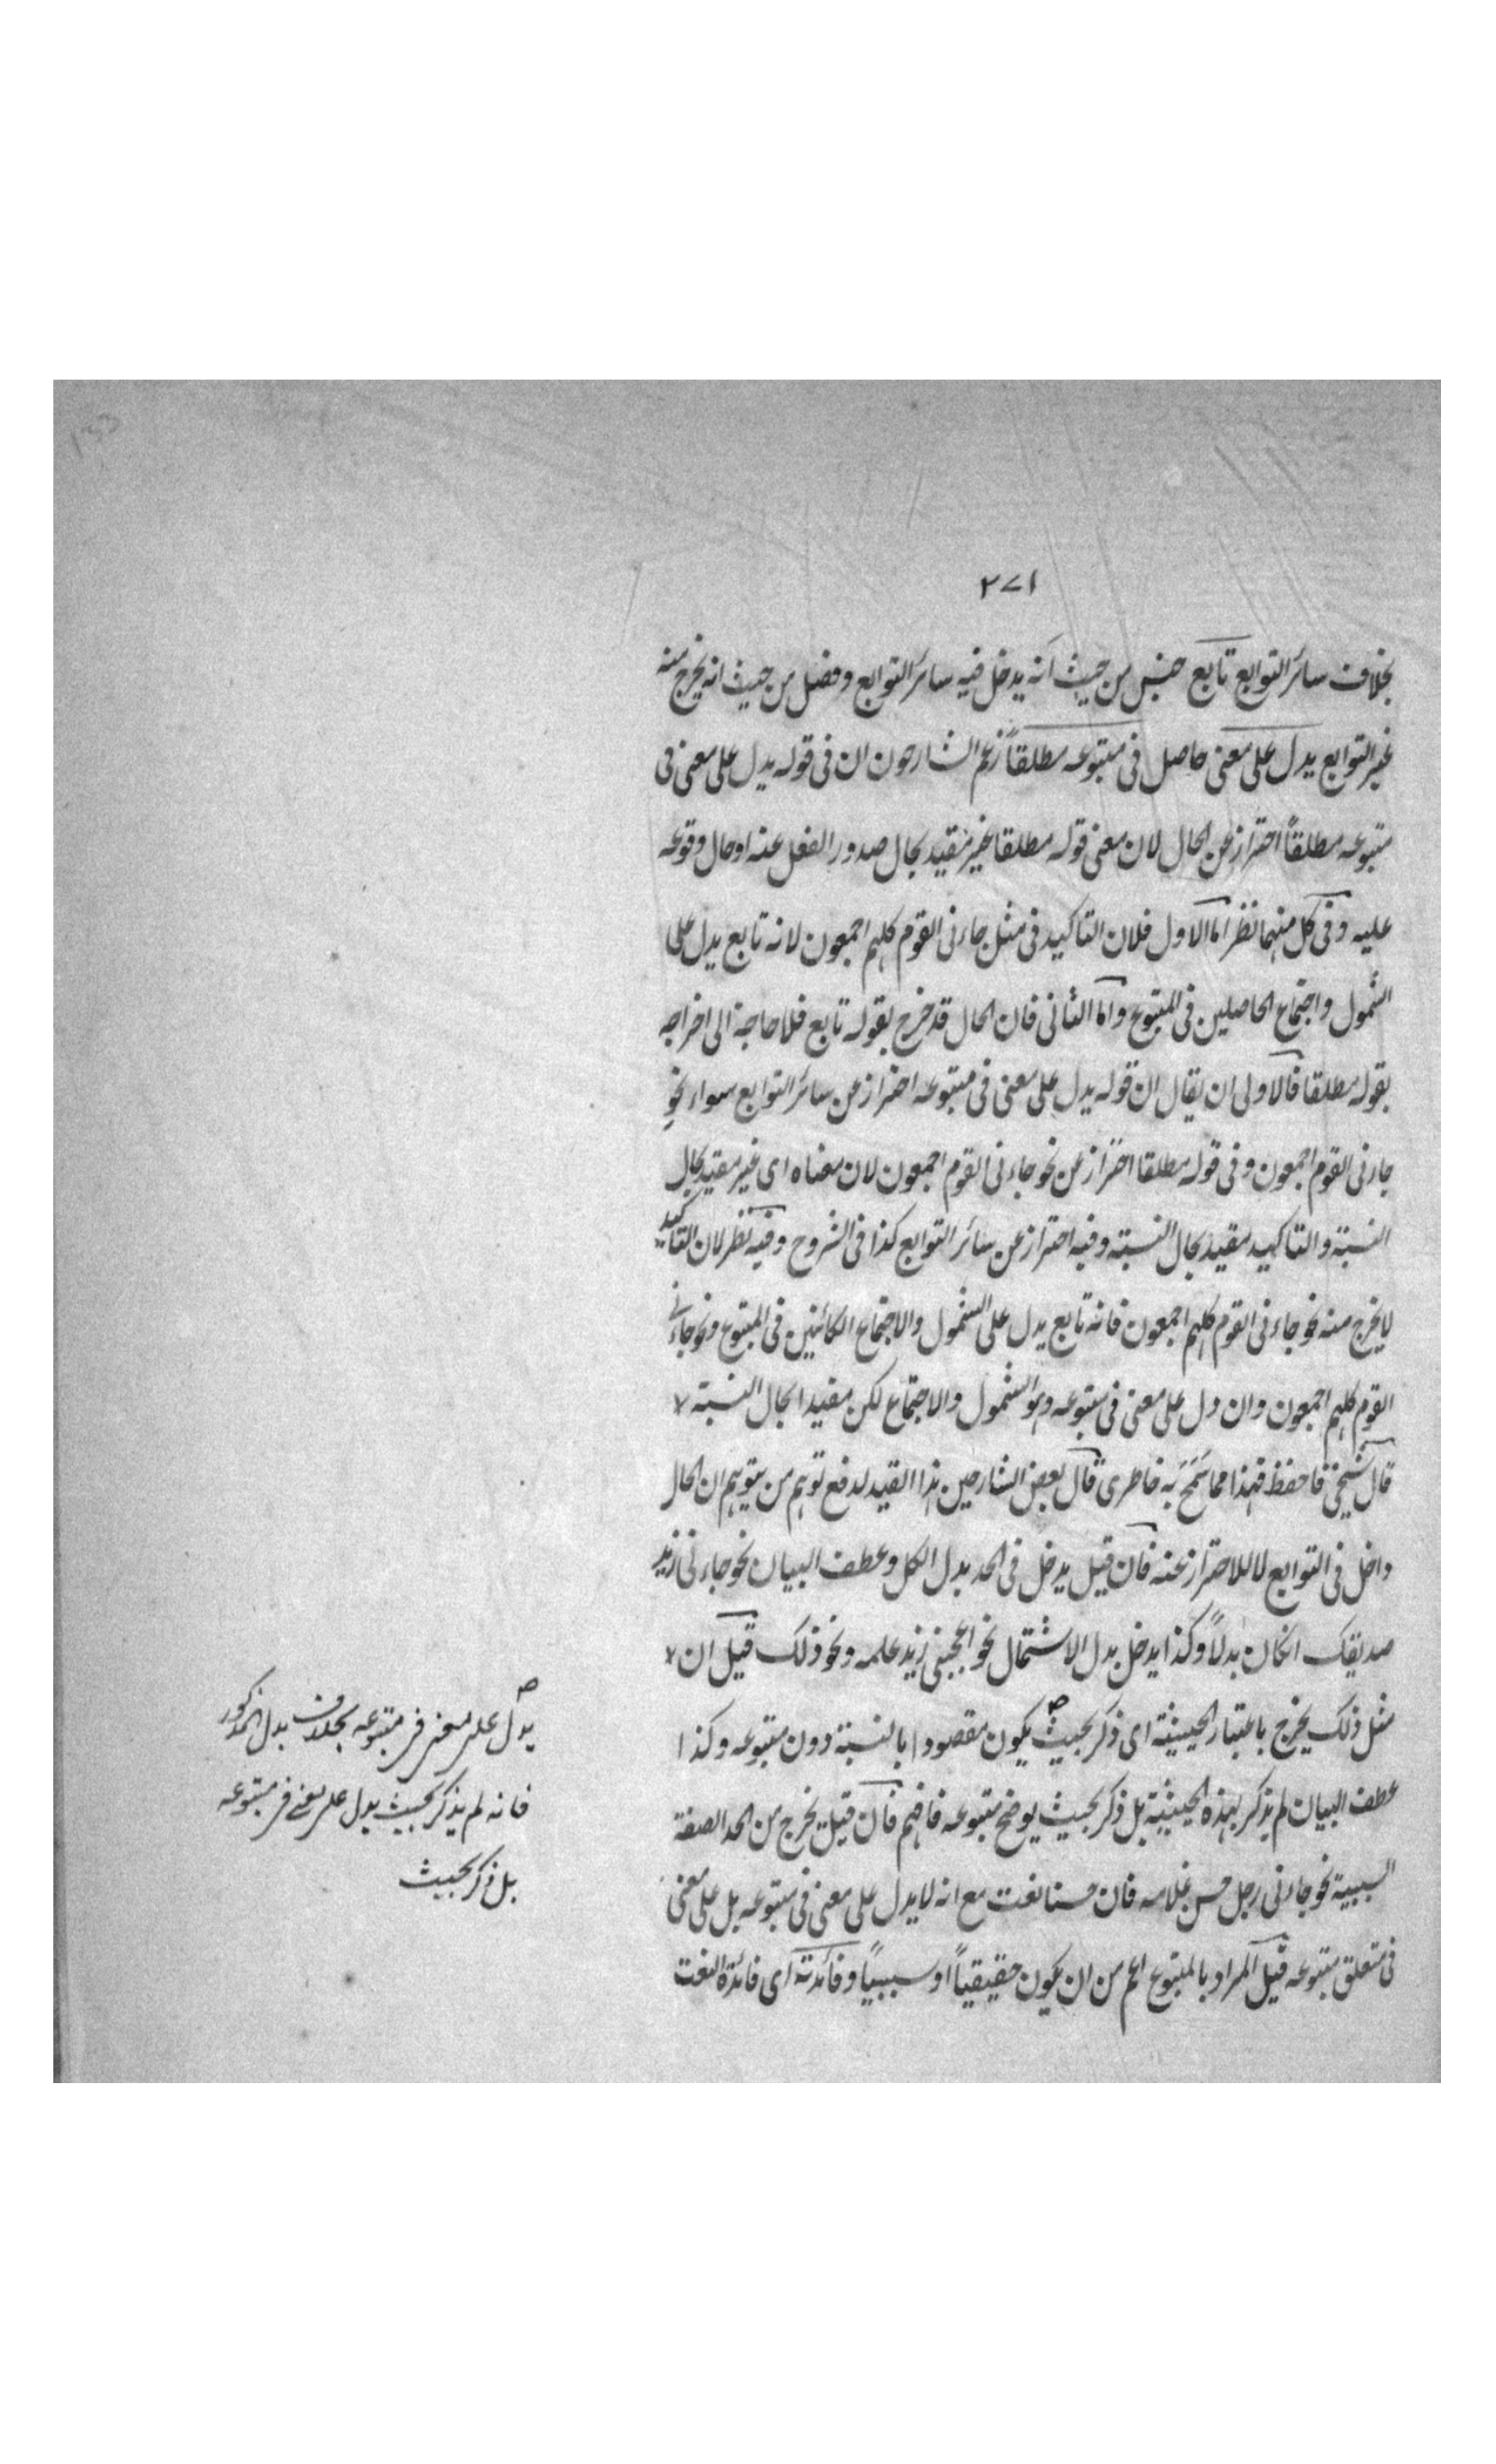 ٢٧١
بخلاف سائر التوابع تابع جنس من حيث انه يدخل فيه سائر التوابع وفصل من حيث انه يخرج منه
غير التوابع يدل على معنى حاصل فى متبوعه مطلقاً زعم الشارحون ان فى قوله يدل على معنى فى
متبوعه مطلقاً احتراز عن الحال لان معنى قوله مطلقا غير مقيد بحال صدور الفعل عنه او حال وقوعه
عليه وفى كل منهما نظر اما الاول فلان التاكيد فى مثل جاءنى القوم كلهم اجمعون لانه تابع يدل على
الشمول واجتماع الحاصلين فى المتبوع واما الثانى فان الحال قد خرج بقوله تابع فلا حاجة الى اخراجه
بقوله مطلقا فالاولى ان يقال ان قوله يدل على معنى فى متبوعه احتراز عن سائر التوابع سواء نحو
جاءنى القوم اجمعون وفى قوله مطلقا احتراز عن نحو جاءنى القوم اجمعون لان معناه اى غير مقيد بحال
النسبة والتاكيد مقيد بحال النسبة وفيه احتراز عن سائر التوابع كذا فى الشروح وفيه نظر لان التاكيد
لا يخرج منه نحو جاءنى القوم كلهم اجمعون فانه تابع يدل على الشمول والاجتماع الكائنين فى المتبوع ونحو جاءنى
القوم كلهم اجمعون وان دل على معنى فى متبوعه وهو الشمول والاجتماع لكن مقيدا بحال النسبة
قال شيخى فاحفظ فهذا مما سَمَحَ به خاطرى قال بعض الشارحين هذا القيد لدفع توهم من يتوهم ان الحال
داخل فى التوابع لا للاحتراز عنه فان قيل يدخل فى الحد بدل الكل وعطف البيان نحو جاءنى زيد
صديقك انكان بدلاً وكذا يدخل بدل الاشتمال نحو اعجبنى زيد علمه ونحو ذلك قيل ان
مثل ذلك يخرج باعتبار الحيثية اى ذكر بحيث يكون مقصودا بالنسبة دون متبوعه وكذا
عطف البيان لم يذكر بهذه الحيثية بل ذكر بحيث يوضح متبوعه فافهم فان قيل يخرج من الحد الصفة
السببية نحو جاءنى رجل حسن غلامه فان حسنا نعت مع انه لا يدل على معنى فى متبوعه بل على معنى
فى متعلق متبوعه قيل المراد بالمتبوع اعم من ان يكون حقيقياً او سببياً وفائدته اى فائدة النعت
يدل على معنى فى متبوعه بخلاف بدل المذكور
فانه لم يذكر بحيث يدل على معنى فى متبوعه
بل ذكر بحيث